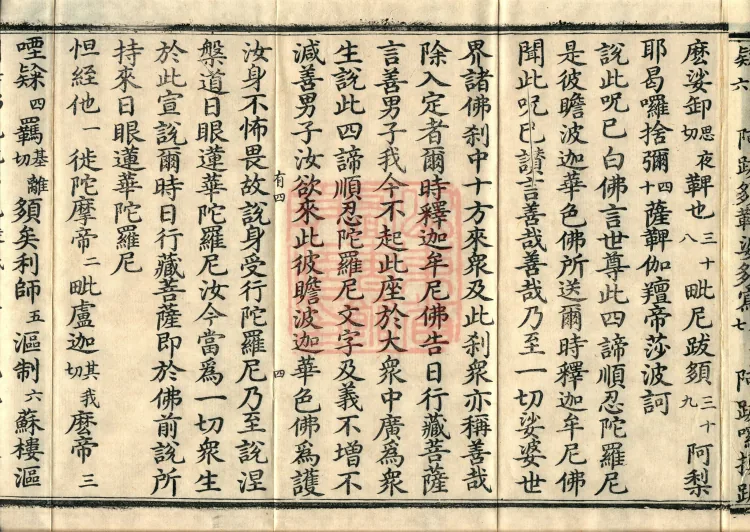 麽娑卸思夜切鞞也三十八毗尼跋頞三十九阿梨
耶曷囉捨彌四十薩鞞伽羶帝莎波訶
說此呪已白佛言世尊此四諦順忍陀羅尼
是彼瞻波迦華色佛所送爾時釋迦牟尼佛
聞此呪已讃言善哉善哉乃至一切娑婆世
界諸佛刹中十方來衆及此刹衆亦稱善哉
除入定者爾時釋迦牟尼佛告日行藏菩薩
言善男子我今不起此座於大衆中廣為衆
生說此四諦順忍陀羅尼文字及義不增不
減善男子汝欲來此彼瞻波迦華色佛為護
有四 四
汝身不怖畏故說身受行陀羅尼乃至說涅
槃道日眼蓮華陀羅尼汝今當為一切衆生
於此宣說爾時日行藏菩薩即於佛前說所
持來日眼蓮華陀羅尼
怛経他一徙陀摩帝二毗盧迦其我切麽帝三
堙㝹四羈基離切頞矣利師五漚制六蘇樓漚